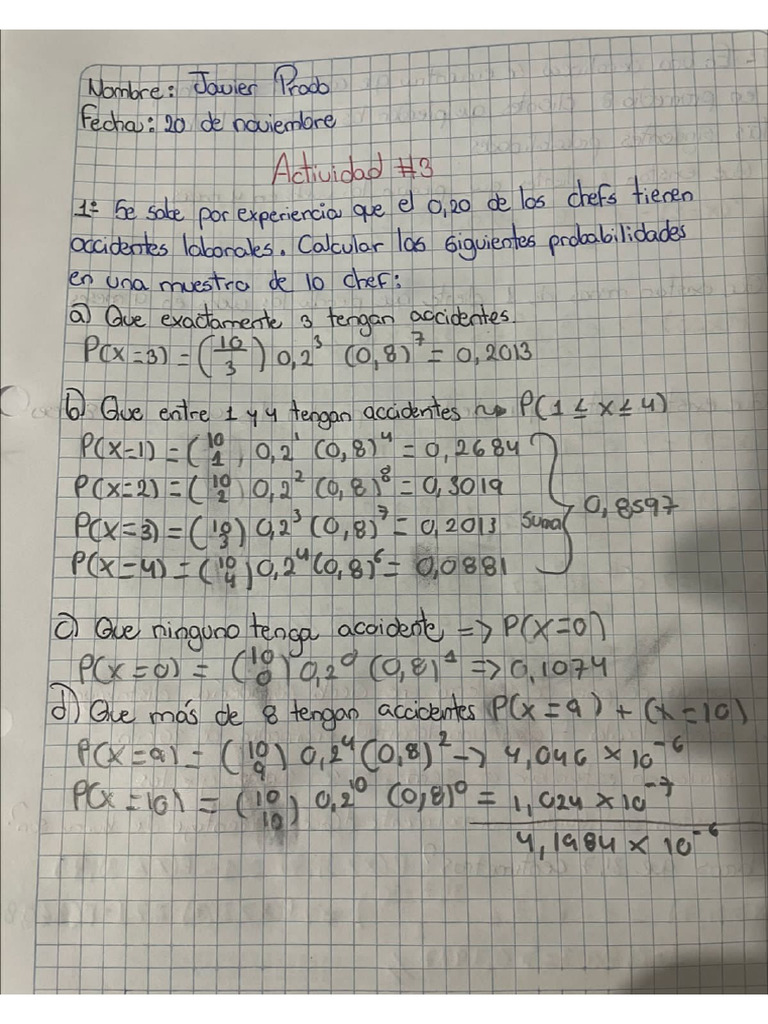 Nombre: Javier Prado
Fecha: 20 de noviembre
Actividad #3
1º Se sabe por experiencia que el 0,20 de los chefs tienen
accidentes laborales. Calcular las siguientes probabilidades
en una muestra de 10 chef:
a) Que exactamente 3 tengan accidentes.
P(x=3) = (10/3) 0,2³ (0,8)⁷ = 0,2013
b) Que entre 1 y 4 tengan accidentes ~> P(1 ≤ x ≤ 4)
P(x=1) = (10 1, 0,2¹ (0,8)⁴ = 0,2684
P(x=2) = (10 2) 0,2² (0,8)⁸ = 0,3019
P(x=3) = (10 3) 0,2³ (0,8)⁷ = 0,2013 suma 0,8597
P(x=4) = (10 4) 0,2⁴ (0,8)⁶ = 0,0881
c) Que ninguno tenga accidente => P(x=0)
P(x=0) = (10 0) 0,2⁰ (0,8)¹ => 0,1074
d) Que más de 8 tengan accidentes P(x=9) + (x=10)
P(x=9) = (10 9) 0,2⁴ (0,8)² -> 4,046 x 10⁻⁶
P(x=10) = (10 10) 0,2¹⁰ (0,8)⁰ = 1,024 x 10⁻⁷
4,1984 x 10⁻⁶